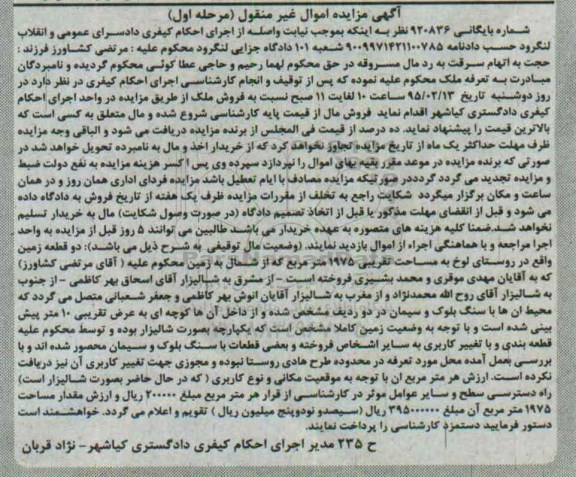 آگهی مزایده اموال غیر منقول (مرحله اول)
شماره بایگانی ۹۲۰۸۳۶ نظر به اینکه بموجب نیابت واصله از اجرای احکام کیفری دادسرای عمومی و انقلاب
لنگرود حسب دادنامه ۹۰۰۹۹۷۱۴۲۱۱۰۰۷۸۵ شعبه ۱۰۱ دادگاه جزایی لنگرود محکوم علیه : مرتضی کشاورز فرزند :
حجت به اتهام سرقت به رد مال مسروقه در حق محکوم لهما رحیم و حاجی عطا کوئی محکوم گردیده و نامبردگان
مبادرت به تعرفه ملک محکوم علیه نموده که پس از توقیف و انجام کارشناسی اجرای احکام کیفری در نظر دارد در
روز دوشنبه تاریخ ۹۵/۰۲/۱۳ ساعت ۱۰ لغایت ۱۱ صبح نسبت به فروش ملک از طریق مزایده در واحد اجرای احکام
کیفری دادگستری کیاشهر اقدام نماید فروش مال از قیمت پایه کارشناسی شروع شده و مال متعلق به کسی است که
بالاترین قیمت را پیشنهاد نماید. ده درصد از قیمت فی المجلس از برنده مزایده دریافت می شود و الباقی وجه مزایده
ظرف مهلت حداکثر یک ماه از تاریخ مزایده تجاوز نخواهد کرد که از خریدار اخذ و مال به نامبرده تحویل خواهد شد در
صورتی که برنده مزایده در موعد مقرر بقیه بهای اموال را نپردازد سپرده وی پس از کسر هزینه مزایده به نفع دولت ضبط
و مزایده تجدید می گردد گردددر صورتیکه مزایده مصادف با ایام تعطیل باشد مزایده فردای اداری همان روز و در همان
ساعت و مکان برگزار میگردد شکایت راجع به تخلف از مقررات مزایده ظرف یک هفته از تاریخ فروش به دادگاه داده
می شود و قبل از انقضای مهلت مذکور یا قبل از اتخاذ تصمیم دادگاه (در صورت وصول شکایت) مال به خریدار تسلیم
نخواهد شد.ضمنا کلیه هزینه های متصوره به عهده خریدار می باشد طالبین می توانند ۵ روز قبل از مزایده به واحد
اجرا مراجعه و با هماهنگی اجراء از اموال بازدید نمایند. (وضعیت مال توقیفی به شرح ذیل می باشد): دو قطعه زمین
واقع در روستای لوخ به مساحت تقریبی ۱۹۷۵ متر مربع که از شمال به زمین محکوم علیه ( آقای مرتضی کشاورز)
که به آقایان مهدی موقری و محمد بشیری فروخته است - از مشرق به شالیزار آقای اسحاق بهر کاظمی - از جنوب
به شالیزار آقای روح الله محمدنژاد و از مغرب به شالیزار آقایان انوش بهر کاظمی و جعفر شعبانی متصل می گردد که
محیط ان ها با سنگ بلوک و سیمان در دو ردیف مشخص شده و از داخل آن ها کوچه ای به عرض تقریبی ۱۰ متر پیش
بینی شده است و با توجه به وضعیت زمین کاملا مشخص است که یکپارچه بصورت شالیزار بوده و توسط محکوم علیه
قطعه بندی و با تغییر کاربری به سایر اشخاص فروخته و بعضی قطعات با سنگ بلوک و سیمان محصور شده اند و با
بررسی بعمل آمده محل مورد تعرفه در محدوده طرح هادی روستا نبوده و مجوزی جهت تغییر کاربری آن نیز دریافت
نکرده است. ارزش هر متر مربع ان با توجه به موقعیت مکانی و نوع کاربری ( که در حال حاضر بصورت شالیزار است)
راه دسترسی سطح و سایر عوامل موثر در کارشناسی از قرار هر متر مربع مبلغ ۲۰۰۰۰۰ ریال و ارزش مقدار مساحت
۱۹۷۵ متر مربع آن مبلغ ۳۹۵۰۰۰۰۰۰ ریال (سیصدو نودوپنج میلیون ریال ) تقویم و اعلام می گردد. خواهشمند است
دستور فرمایید دستمزد کارشناسی را پرداخت نمایند.
ح ۲۳۵ مدیر اجرای احکام کیفری دادگستری کیاشهر- نژاد قربان